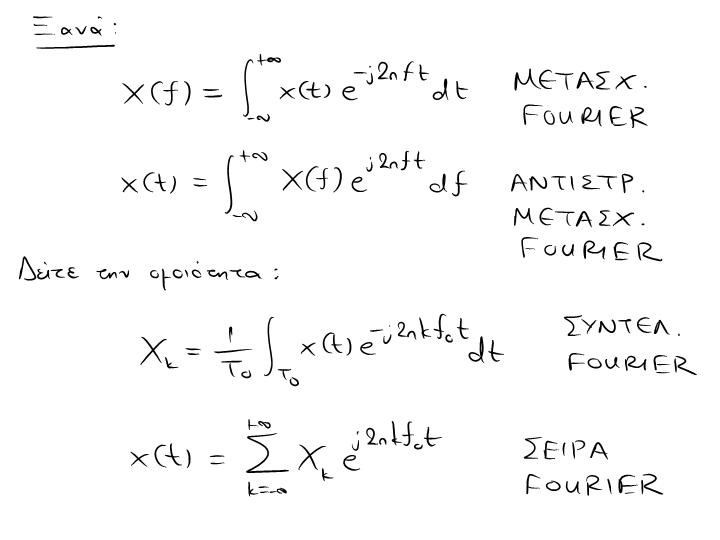 Ξανά:
X(f) = ∫_{-∞}^{+∞} x(t) e^{-j2πft} dt ΜΕΤΑΣΧ. FOURIER
x(t) = ∫_{-∞}^{+∞} X(f) e^{j2πft} df ΑΝΤΙΣΤΡ. ΜΕΤΑΣΧ. FOURIER
Δείτε την ομοιότητα:
X_k = 1/T_0 ∫_{T_0} x(t) e^{-j2πkf_0t} dt ΣΥΝΤΕΛ. FOURIER
x(t) = Σ_{k=-∞}^{+∞} X_k e^{j2πkf_0t} ΣΕΙΡΑ FOURIER